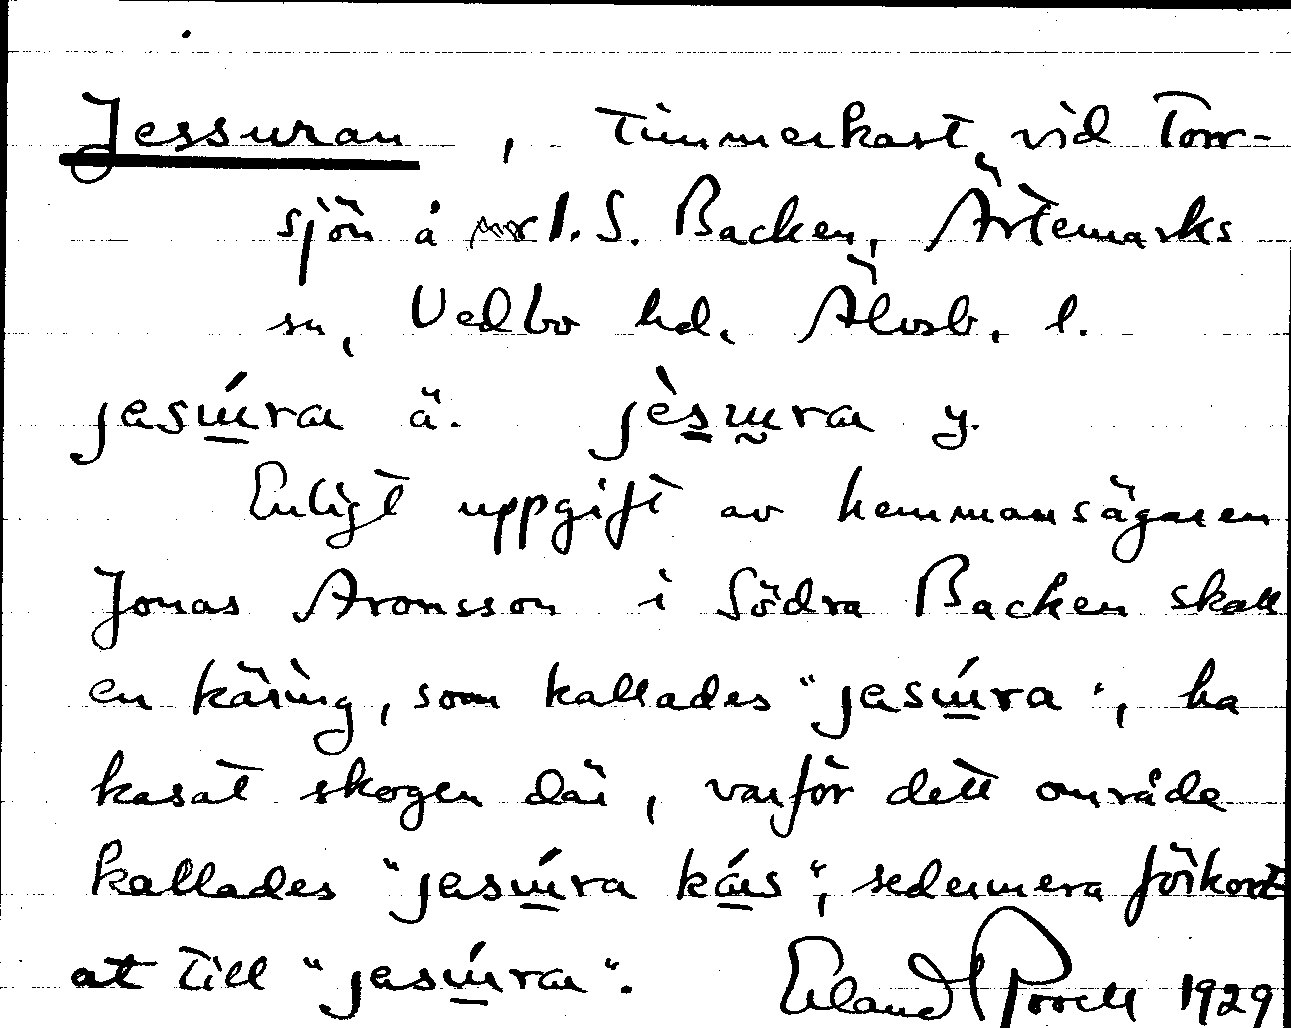 Jessuran, timmerkast vid Torr-
sjön å nr 1. S. Backen, Ärtemarks
sn, Vedbo hd. Älvsb. l.
jasɯ́ra ä. jèsɯra y.
Enligt uppgift av hemmansägaren
Jonas Aronsson i Södra Backen skall
en käring, som kallades "jasɯ́ra", ha
kasat skogen där, varför dett område
kallades "jasɯ́ra kás", sedermera förkort-
at till "jasɯ́ra".
Erland 1929